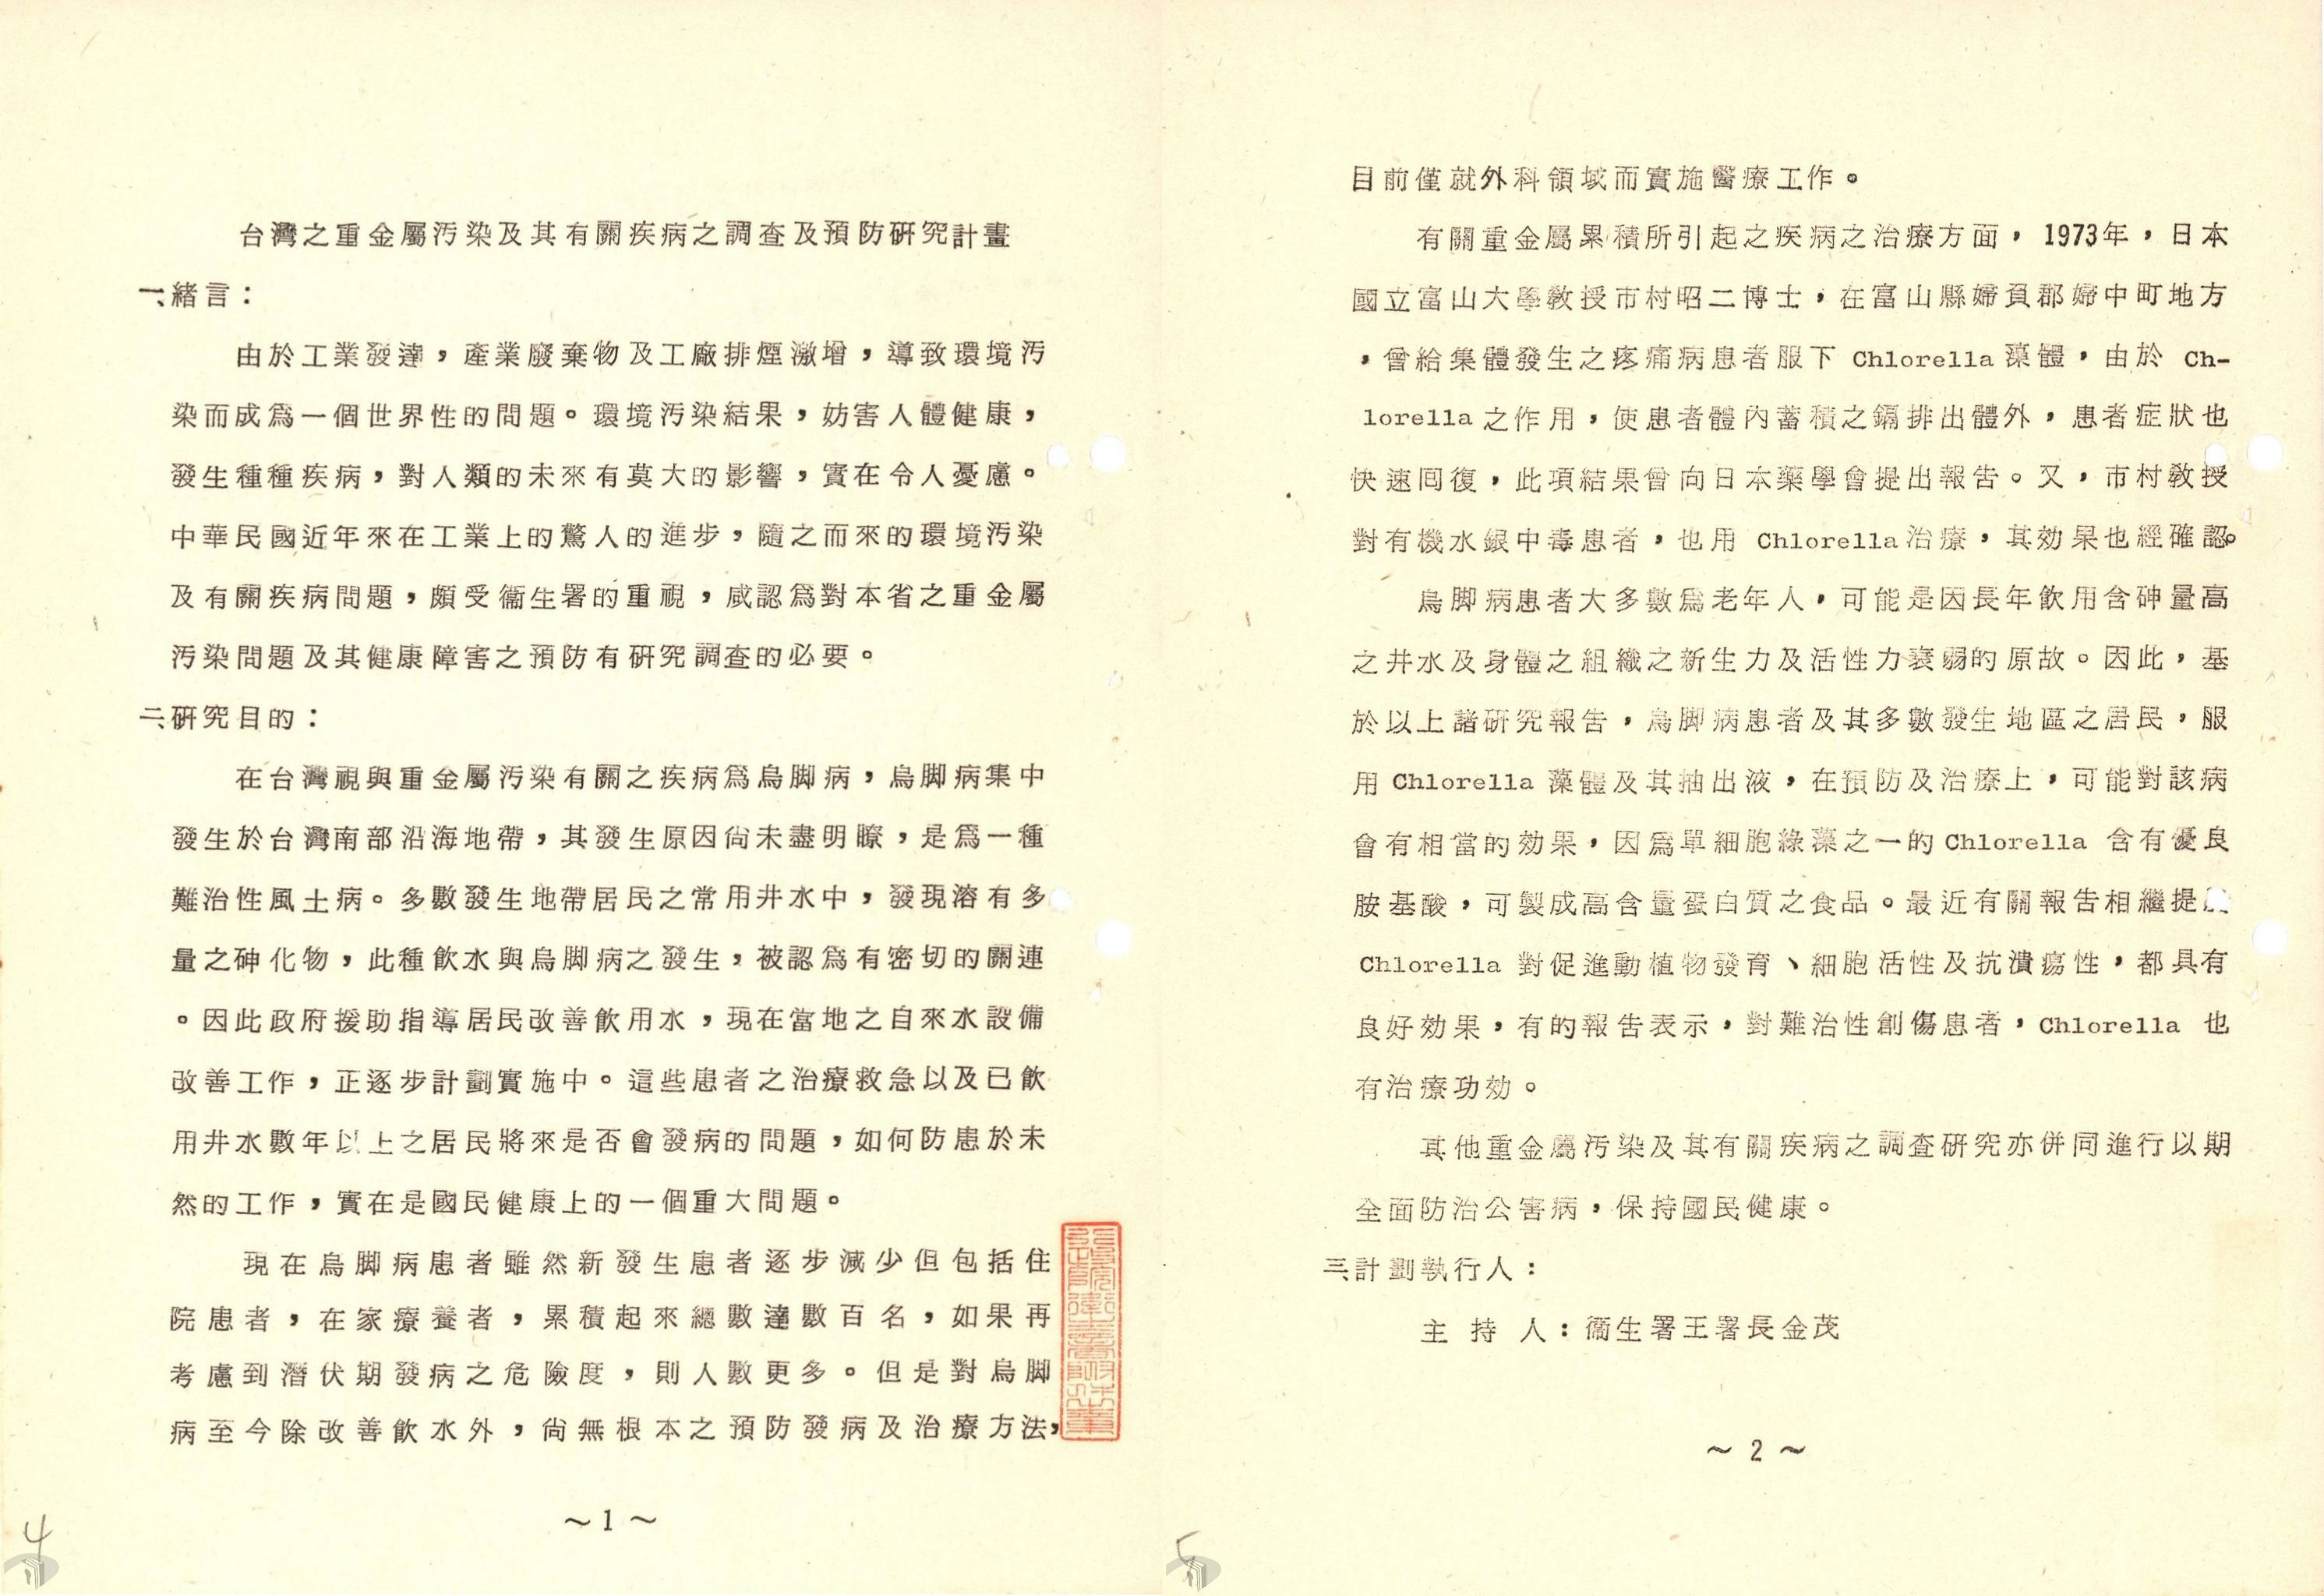 台灣之重金屬汚染及其有關疾病之調查及預防研究計畫
一、緒言：
由於工業發達，產業廢棄物及工廠排煙激增，導致環境汚
染而成爲一個世界性的問題。環境汚染結果，妨害人體健康，
發生種種疾病，對人類的未來有莫大的影響，實在令人憂慮。
中華民國近年來在工業上的驚人的進步，隨之而來的環境汚染
及有關疾病問題，頗受衞生署的重視，咸認爲對本省之重金屬
汚染問題及其健康障害之預防有研究調查的必要。
二、研究目的：
在台灣視與重金屬汚染有關之疾病爲烏脚病，烏脚病集中
發生於台灣南部沿海地帶，其發生原因尙未盡明瞭，是爲一種
難治性風土病。多數發生地帶居民之常用井水中，發現溶有多
量之砷化物，此種飮水與烏脚病之發生，被認爲有密切的關連
。因此政府援助指導居民改善飮用水，現在當地之自來水設備
改善工作，正逐步計劃實施中。這些患者之治療救急以及已飮
用井水數年以上之居民將來是否會發病的問題，如何防患於未
然的工作，實在是國民健康上的一個重大問題。
現在烏脚病患者雖然新發生患者逐步減少但包括住
院患者，在家療養者，累積起來總數達數百名，如果再
考慮到潛伏期發病之危險度，則人數更多。但是對烏脚
病至今除改善飮水外，尙無根本之預防發病及治療方法，
～1～
4
目前僅就外科領域而實施醫療工作。
有關重金屬累積所引起之疾病之治療方面，1973年，日本
國立富山大學敎授市村昭二博士，在富山縣婦負郡婦中町地方
，曾給集體發生之疼痛病患者服下 Chlorella 藻體，由於 Ch-
lorella 之作用，使患者體內蓄積之鎘排出體外，患者症狀也
快速回復，此項結果曾向日本藥學會提出報告。又，市村敎授
對有機水銀中毒患者，也用 Chlorella 治療，其効果也經確認。
烏脚病患者大多數爲老年人，可能是因長年飮用含砷量高
之井水及身體之組織之新生力及活性力衰弱的原故。因此，基
於以上諸研究報告，烏脚病患者及其多數發生地區之居民，服
用 Chlorella 藻體及其抽出液，在預防及治療上，可能對該病
會有相當的効果，因爲單細胞綠藻之一的 Chlorella 含有優良
胺基酸，可製成高含量蛋白質之食品。最近有關報告相繼提
Chlorella 對促進動植物發育、細胞活性及抗潰瘍性，都具有
良好効果，有的報告表示，對難治性創傷患者，Chlorella 也
有治療功効。
其他重金屬汚染及其有關疾病之調查研究亦併同進行以期
全面防治公害病，保持國民健康。
三、計劃執行人：
主持人：衞生署王署長金茂
～2～
5